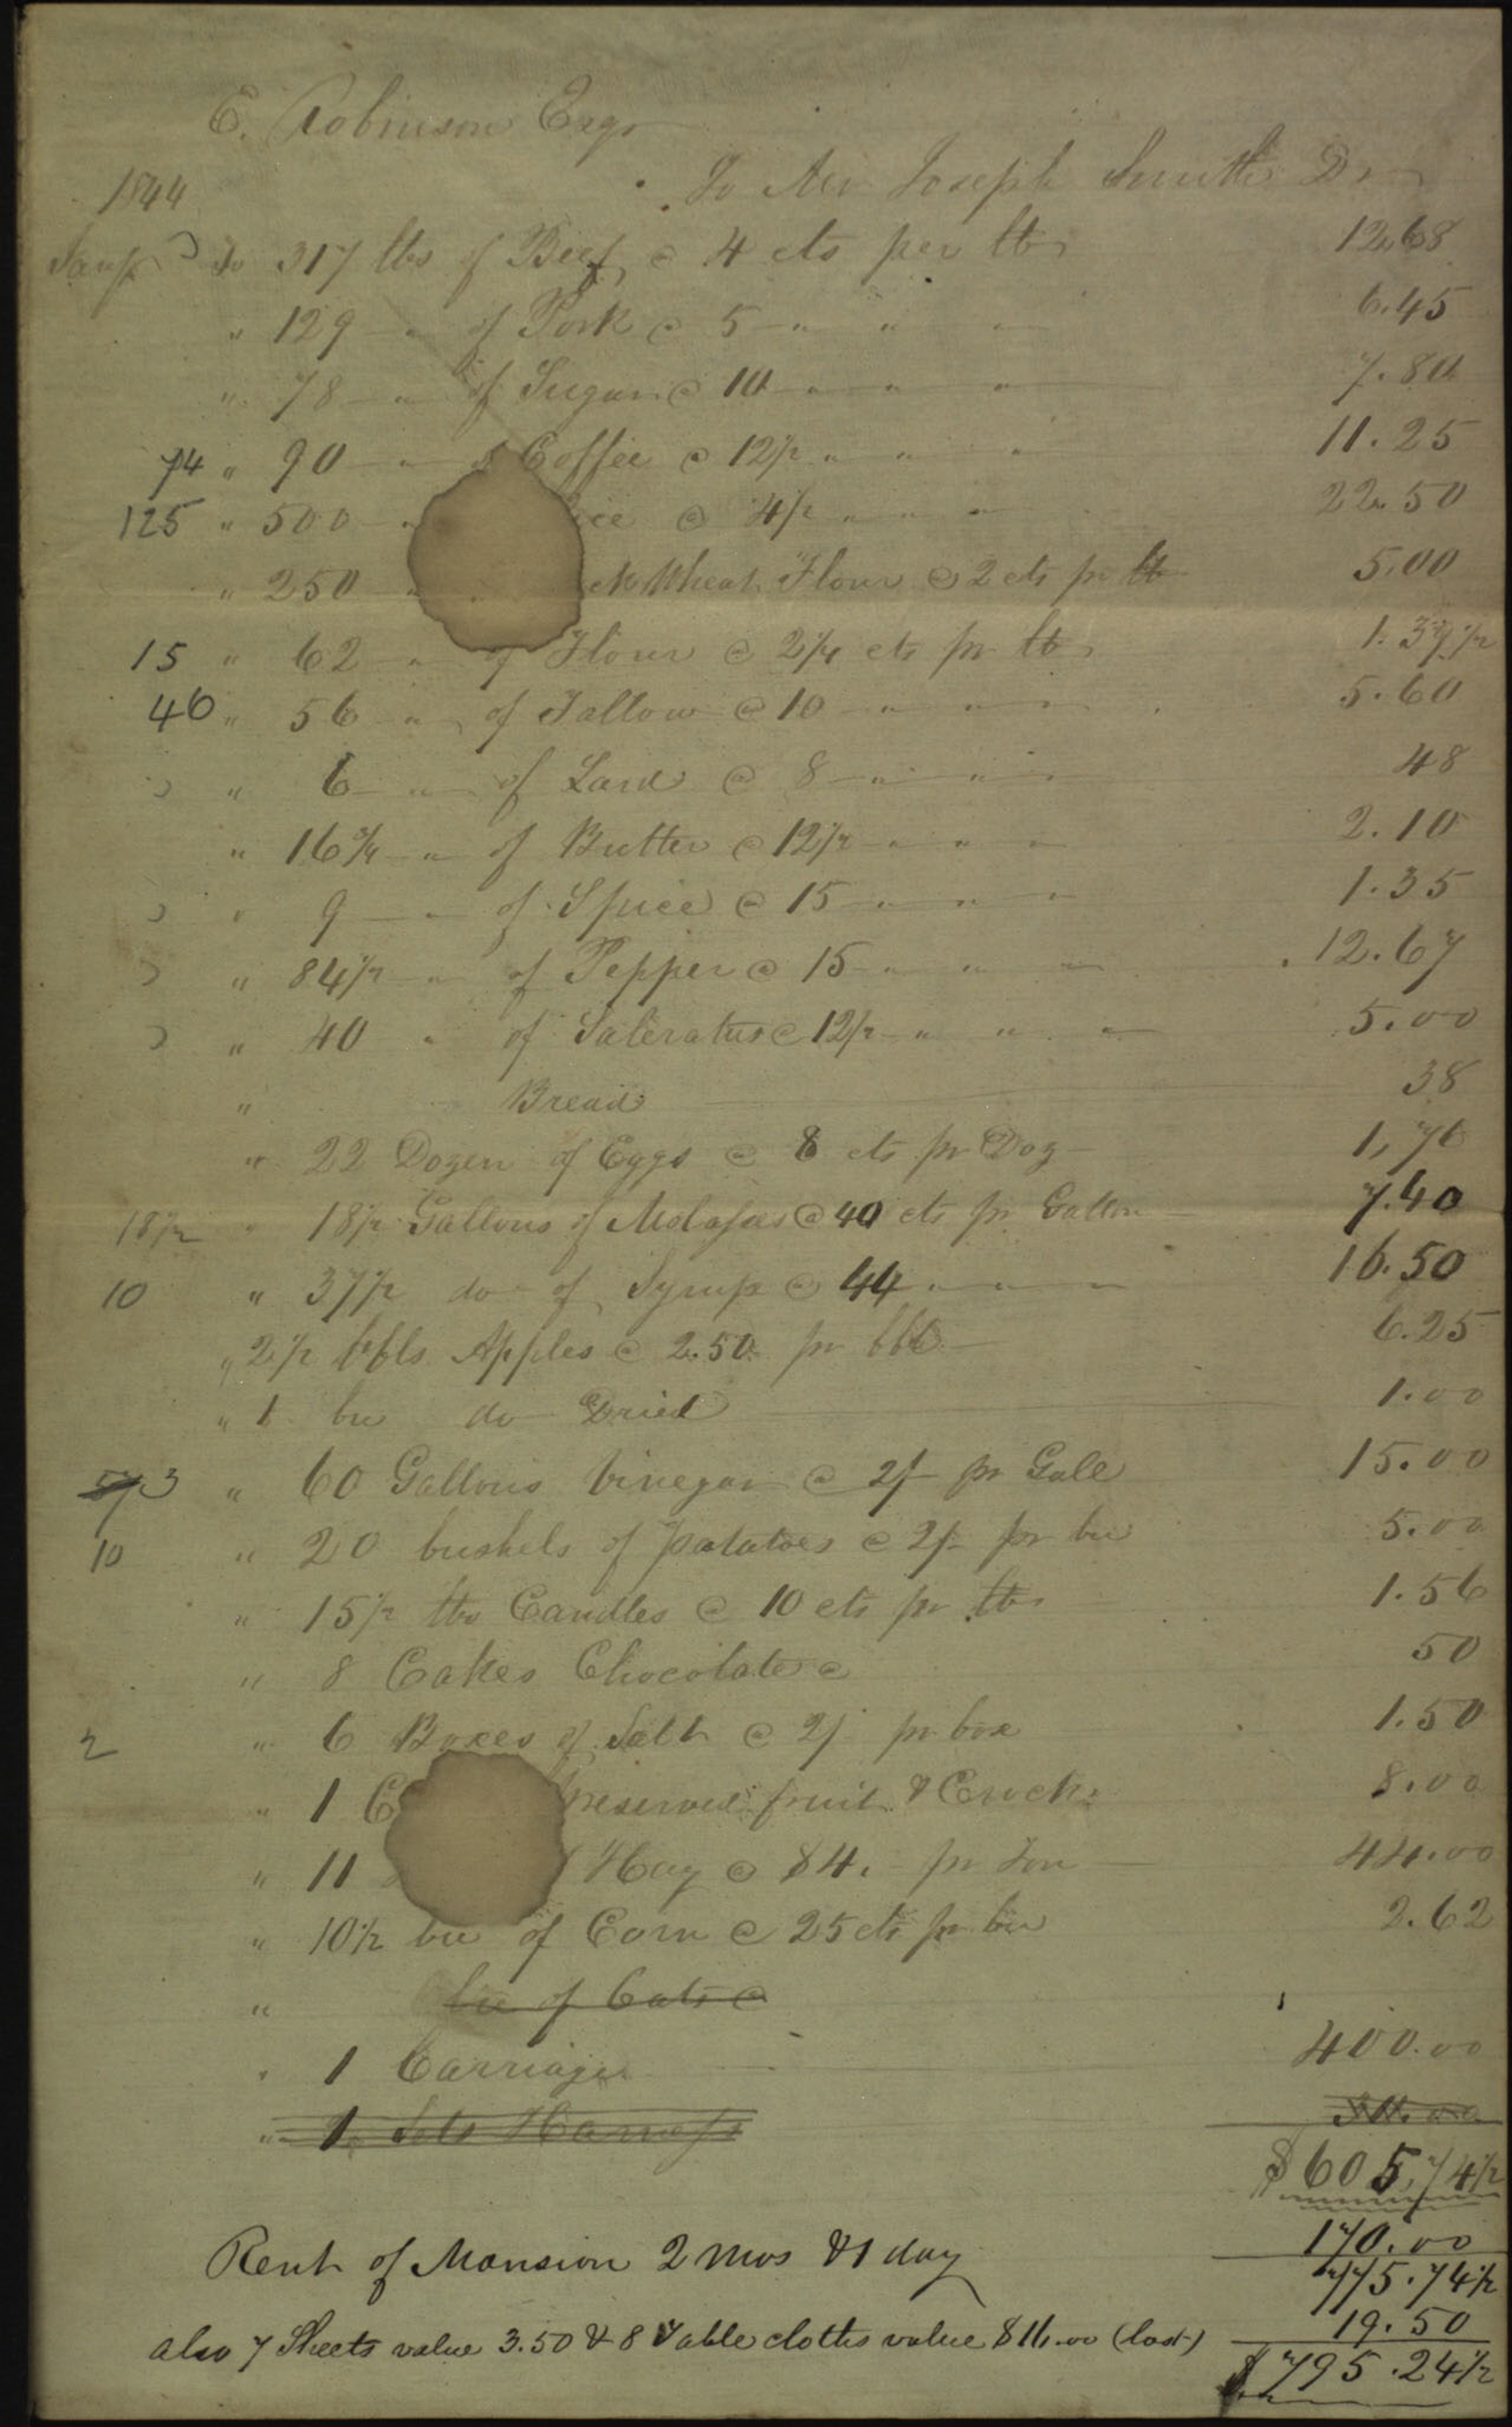 E. Robinson Esqr
1844 To Mr Joseph Smith Dr
To 317 lbs of Beef @ 4 cts per lb 12.68
" 129 — " of Pork @ 5 — " " " 6.45
" 78 — " of Sugar @ 10 — " — " — " 7.80
74 " 90 — " of Coffee @ 12½ " " " 11.25
125 " 500 — " ice @ 4½ " " " 22.50
" 250 " ck Wheat Flour @ 2 cts pr lb 5.00
15 " 62 — " of Flour @ 2¼ cts pr lb 1.39½
46 " 56 " of Tallow @ 10 — " " " 5.60
" 6 — " of Lard @ 8 — " " " 48
" 16¾ — " of Butter @ 12½ — " " " 2.10
" 9 — " of Spice @ 15 — " " " 1.35
" 84½ — " of Pepper @ 15 — " " " 12.67
" 40 " of Saleratus @ 12½ — " " " 5.00
" Bread 38
" 22 Dozen of Eggs @ 8 cts pr Doz 1,76
18½ " 18½ Gallons of Molasses @ 40 cts pr Gallon 7.40
10 " 37½ do of Syrup @ 44 " " " 16.50
" 2½ bbls Apples @ 2.50 pr bbl 6.25
" 1 bu do Dried 1.00
3 " 60 Gallons Vinegar @ 2/- pr Gall 15.00
10 " 20 bushels of potatoes @ 2/- pr bu 5.00
" 15½ lbs Candles @ 10 cts pr lb 1.56
" 8 Cakes Chocolate @ 50
2 " 6 Boxes of Salt @ 2/ pr box 1.50
" 1 C preserved fruit & Crock 8.00
" 11 Hay @ $4.- pr Ton 44.00
" 10½ bu of Corn @ 25 cts pr bu 2.62
" bu of Oats @
" 1 Carriage 400.00
" 1 Sets Harness
$605,74½
Rent of Mansion 2 mos & 1 day 170.00
775.74½
also 7 Sheets value 3.50 & 8 Table cloths value $16.00 (lost) 19.50
$795.24½